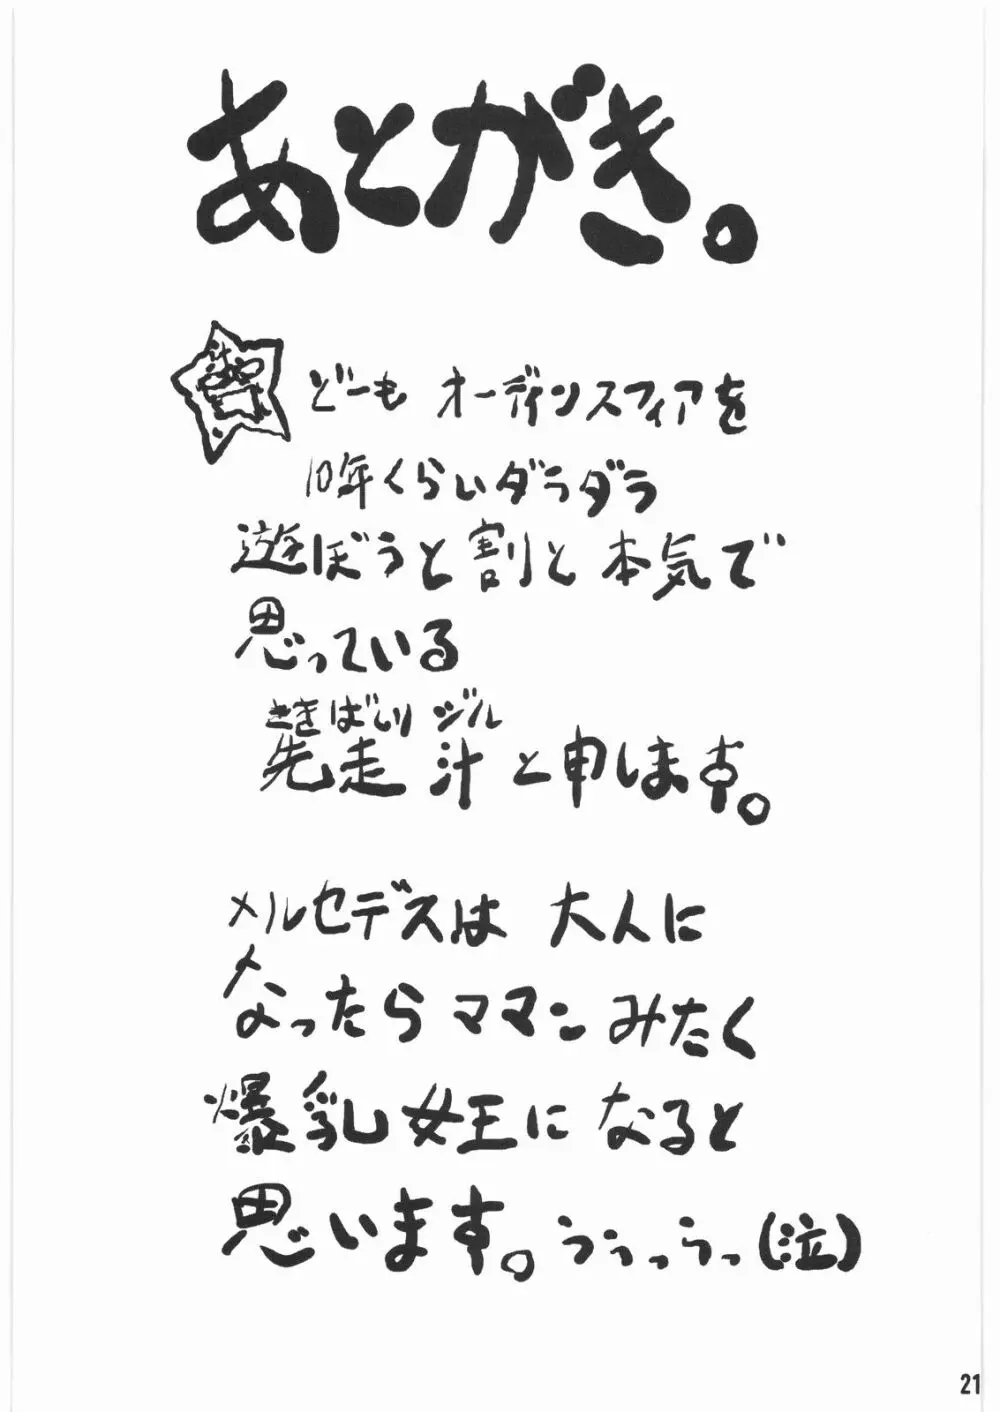 あとがき。
どーも オーディンスフィアを
10年くらいダラダラ
遊ぼうと割と本気で
思っている
さきばしり ジル
先走 汁 と申します。
メルセデスは 大人に
なったらママンみたく
爆乳女王になると
思います。ううっうっ(泣)
21